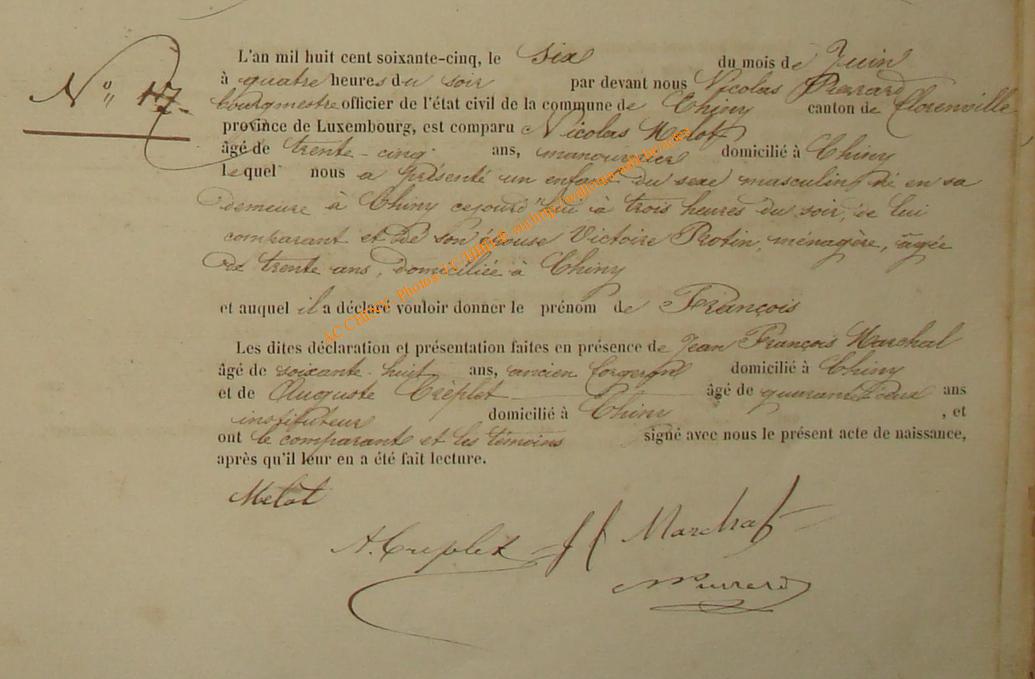 N° 17
L'an mil huit cent soixante-cinq, le six du mois de Juin
à quatre heures du soir par devant nous Nicolas Perrard
bourgmestre officier de l'état civil de la commune de Chiny canton de Florenville
province de Luxembourg, est comparu Nicolas Melot
âgé de trente-cinq ans, manouvrier domicilié à Chiny
lequel nous a présenté un enfant du sexe masculin, né en sa
demeure à Chiny cejourd'hui à trois heures du soir, de lui
comparant et de son épouse Victoire Protin, ménagère, âgée
de trente ans, domiciliée à Chiny
et auquel il a déclaré vouloir donner le prénom de François
Les dites déclaration et présentation faites en présence de Jean François Marchal
âgé de soixante-huit ans, ancien forgeron domicilié à Chiny
et de Auguste Créplet âgé de quarante deux ans
instituteur domicilié à Chiny, et
ont le comparant et les témoins signé avec nous le présent acte de naissance,
après qu'il leur en a été fait lecture.
Melot
A. Créplet J F Marchal
N Perrard
AC CHINY. Photos AC CHINY